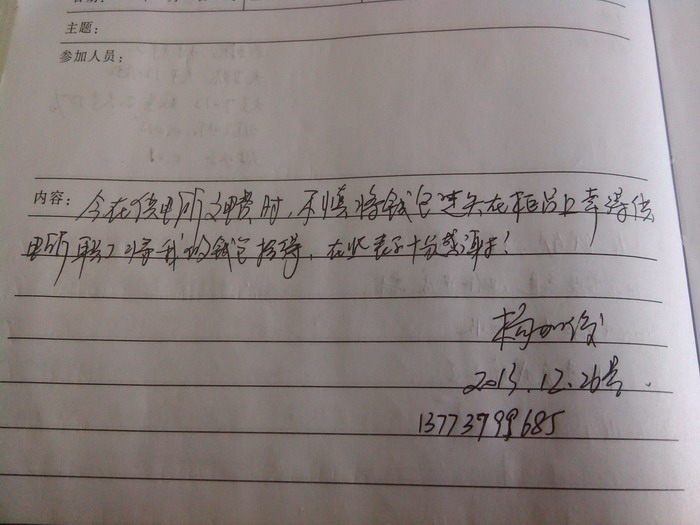 主题：
参加人员：
内容：今在供电所交电费时，不慎将钱包遗失在柜台上幸得供
电所职工将我的钱包拾得，在此表示十分感谢！
2013.12.26号.
13773799685